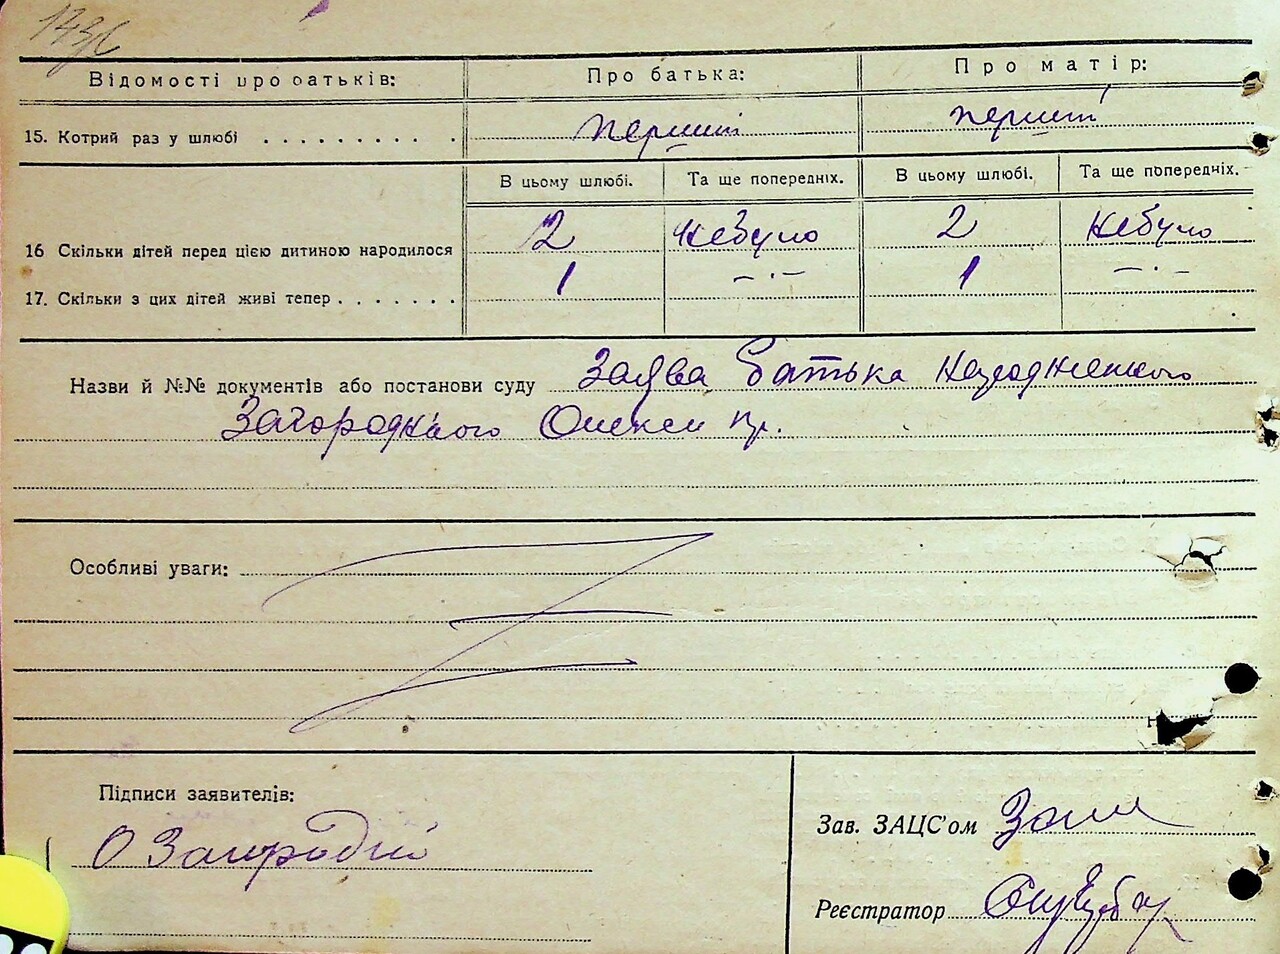 Відомості про батьків: Про батька: Про матір:
15. Котрий раз у шлюбі . . . . . . . . . . перший перший
В цьому шлюбі. Та ще попередніх. В цьому шлюбі. Та ще попередніх.
16 Скільки дітей перед цією дитиною народилося 2 небуло 2 небуло
17. Скільки з цих дітей живі тепер . . . . . . . 1 — · — 1 — · —
Назви й №№ документів або постанови суду Заява батька
Загороднього Олекси пр.
Особливі уваги:
Підписи заявителів:
О Загродній
Зав. ЗАЦС'ом
Реєстратор